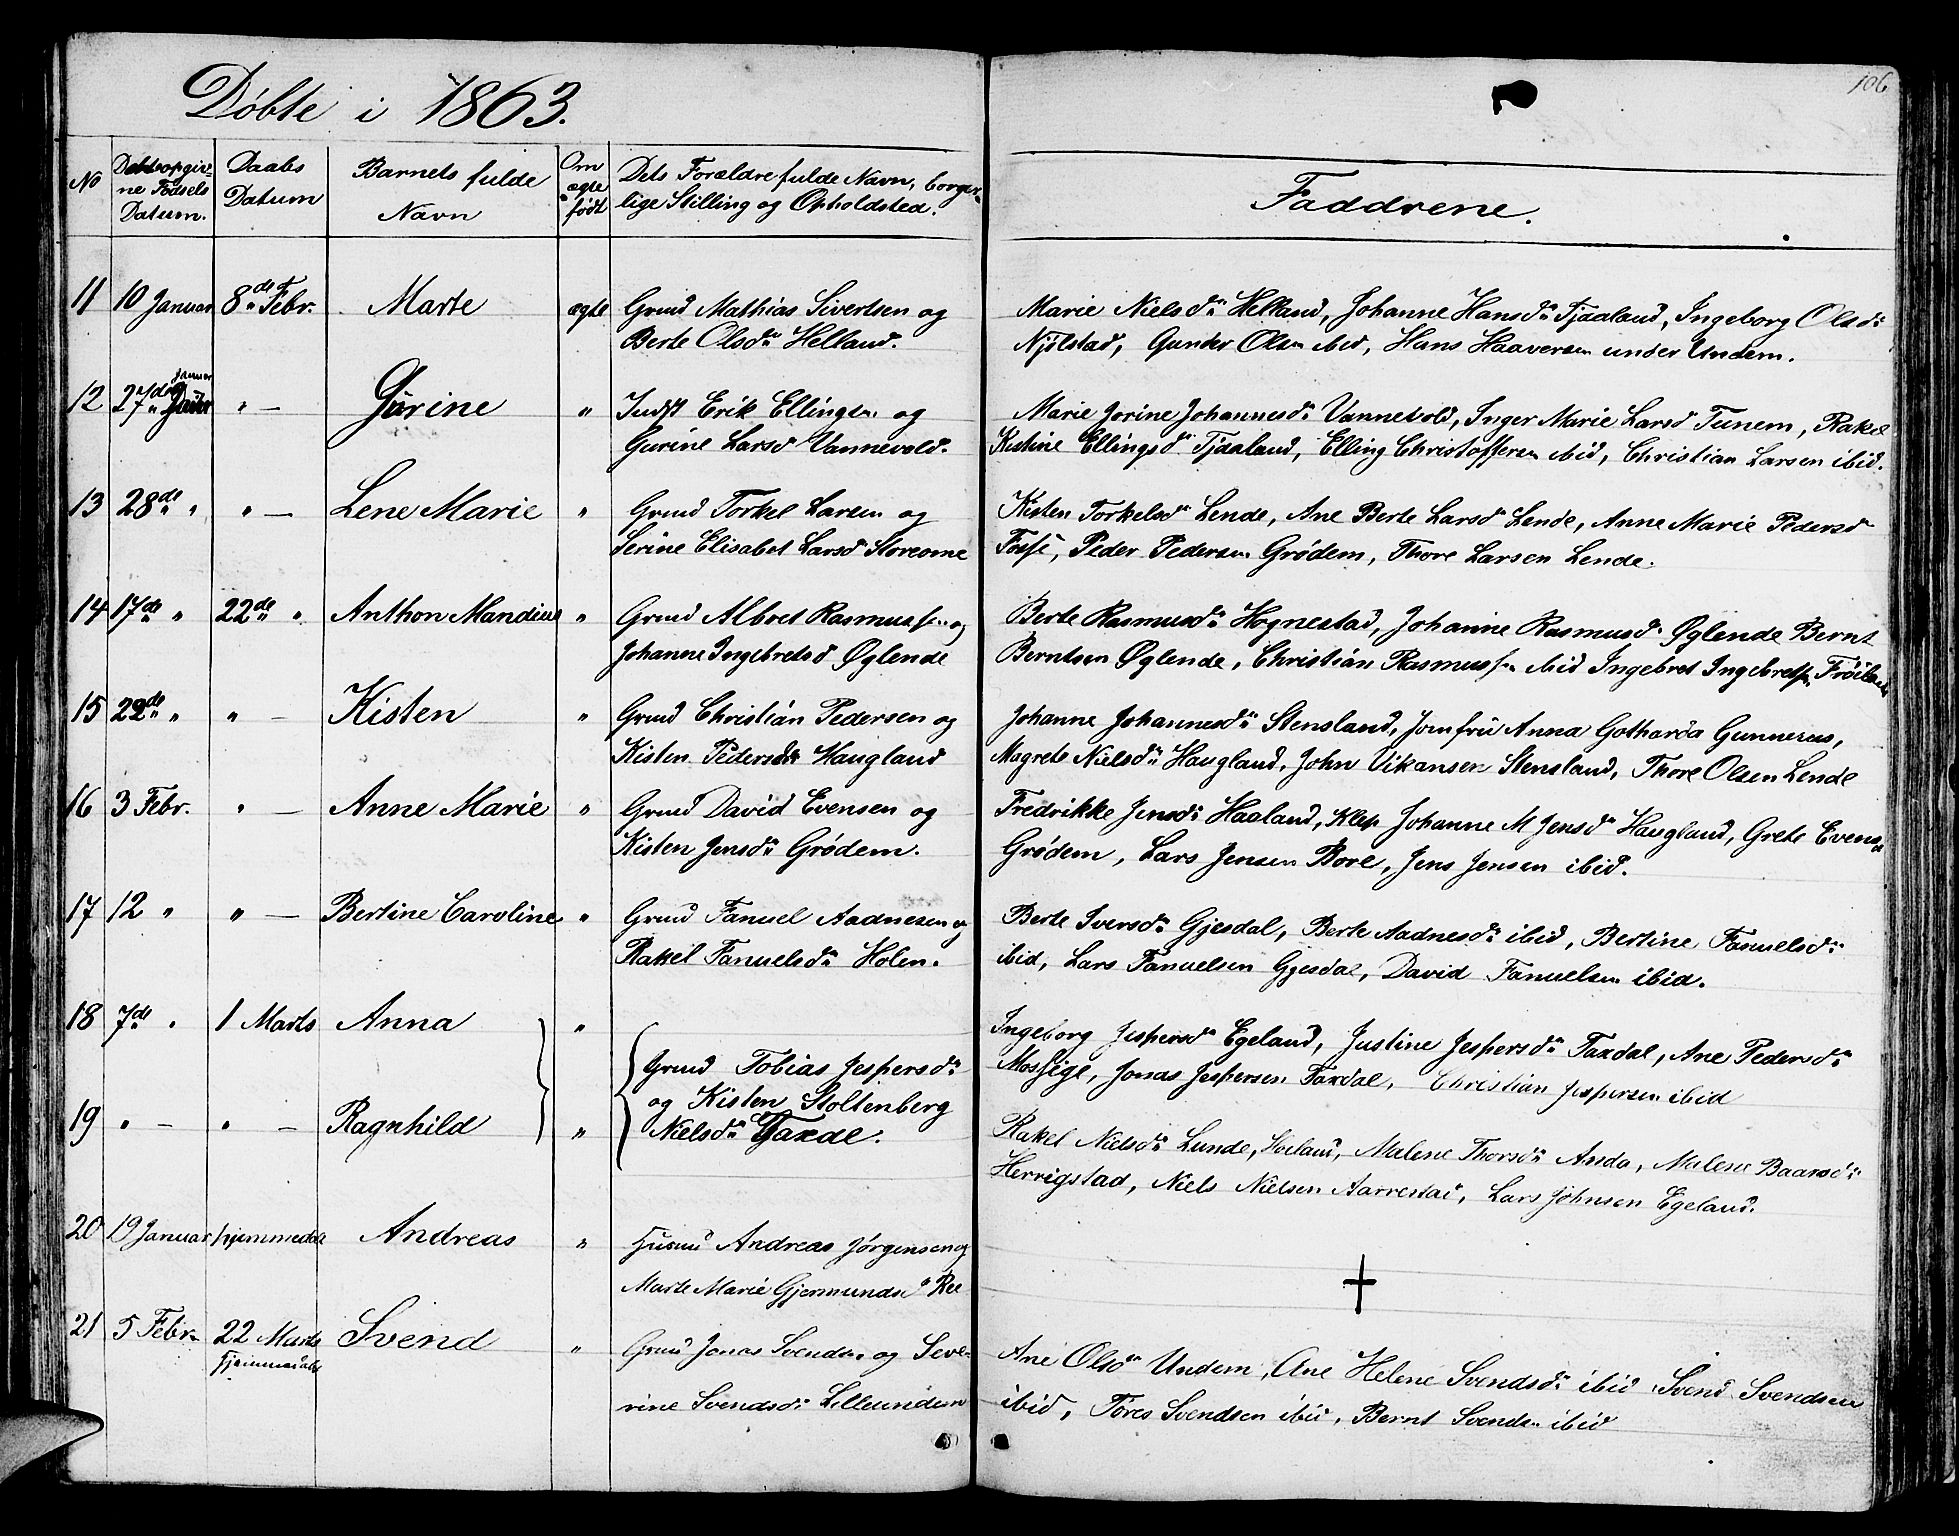 Døbte i 1863.
106
No
Dets opgiv-
ne Fødsels
Datum.
Daabs
Datum
Barnets fulde
Navn
Om
ægte
født
Dets Forældre fulde Navn, borger-
lige Stilling og Opholdsted.
Faddrene.
11 10 Januar 8de Febr. Marte ægte Grmd Mathias Sivertsen og
Berte Olsdr Helland.
Marie Nielsdr Helland, Johanne Hansdr Tjaaland, Ingeborg Olsdr
Njølstad, Gunder Olsen ibid, Hans Haaversen under Undem.
12 27de Januar " — Gurine " Indst Erik Ellingsen og
Gurine Larsd Vannevold.
Marie Jorine Johannesdr Vannevold, Inger Marie Larsd Tunem, Rakel
Kistine Ellingsdr Tjaaland, Elling Christoffersen ibid, Christian Larsen ibid.
13 28de " " — Lene Marie " Grmd Torkel Larsen og
Serine Elisabet Larsd Storeome
Kisten Torkelsdr Lende, Ane Berte Larsdr Lende, Anne Marie Pedersd
Fosse, Peder Pedersen Grødem, Thore Larsen Lende.
14 17de " 22de " Anthon Mandius " Grmd Albret Rasmussen og
Johanne Ingebretsd Øglende
Berte Rasmusdr Hognestad, Johanne Rasmusdr Øglende Bernt
Berntsen Øglende, Christian Rasmussen ibid Ingebret Ingebretsen Frøiland
15 22de " " — Kisten " Grmd Christian Pedersen og
Kisten Pedersdr Haugland
Johanne Johannesdr Stensland, Jomfru Anna Gotharda Gunnerus,
Magrete Nielsdr Haugland, John Vikansen Stensland, Thore Olsen Lende
16 3 Febr. " — Anne Marie " Grmd David Evensen og
Kisten Jensdr Grødem.
Fredrikke Jensdr Haaland, Klep Johanne M Jensdr Haugland, Grete Evensdr
Grødem, Lars Jensen Bore, Jens Jensen ibid.
17 12 " " — Bertine Caroline " Grmd Fanuel Aadnesen og
Rakel Fanuelsdr Holen.
Berte Iversdr Gjesdal, Berte Aadnesdr ibid, Bertine Fanuelsdr
ibid, Lars Fanuelsen Gjesdal, David Fanuelsen ibid.
18 7de " 1 Marts Anna "
Grmd Tobias Jespersdr
og Kisten Stoltenberg
Nielsdr Taxdal.
Ingeborg Jespersdr Egeland, Justine Jespersdr Taxdal, Ane Pedersdr
Mossige, Jonas Jespersen Taxdal, Christian Jespersen ibid
19 " — " — Ragnhild "
Rakel Nielsdr Lunde, Malene Thorsdr Anda, Malene Baarsdr
Herrigstad, Niels Nielsen Aarrestad, Lars Johnsen Egeland.
20 19 Januar hjemmedøbt Andreas " Husmd Andreas Jørgensen og
Marte Marie Gjermundsd Ree
21 5 Febr. 22 Marts Svend " Grmd Jonas Svendsen og Seve-
hjemmedøbt
rine Svendsdr Lilleundem
Ane Olsdr Undem, Ane Helene Svendsdr ibid Svend Svendsen
ibid, Tores Svendsen ibid, Bernt Svendsen ibid